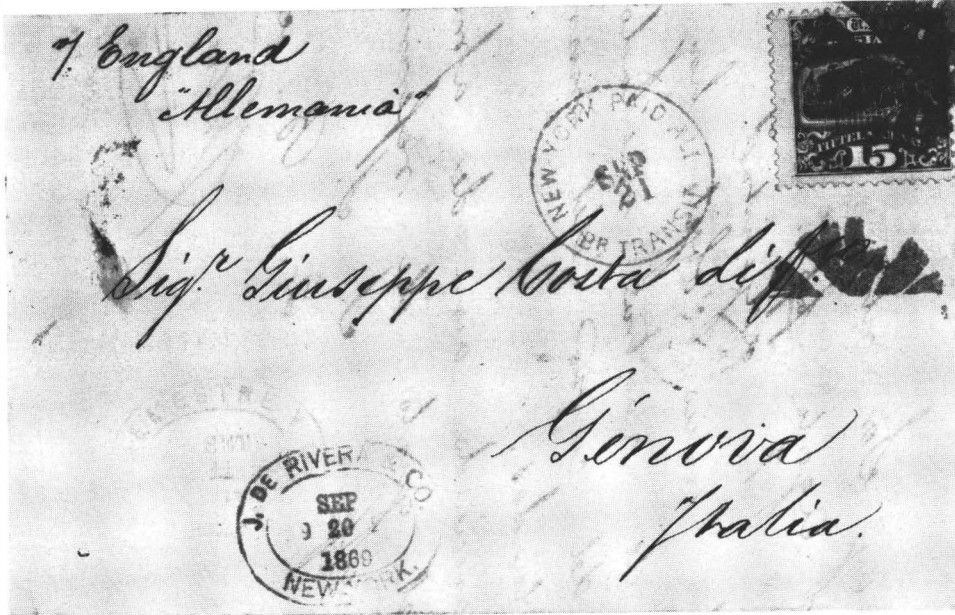 p. England
"Allemania"
NEW YORK PAID ALL
BR TRANSIT
FIFTEEN
15
Sigr. Giuseppe Costa di
Génova
Italia.
J. DE RIVERA & CO.
SEP
20
1869
NEW YORK.